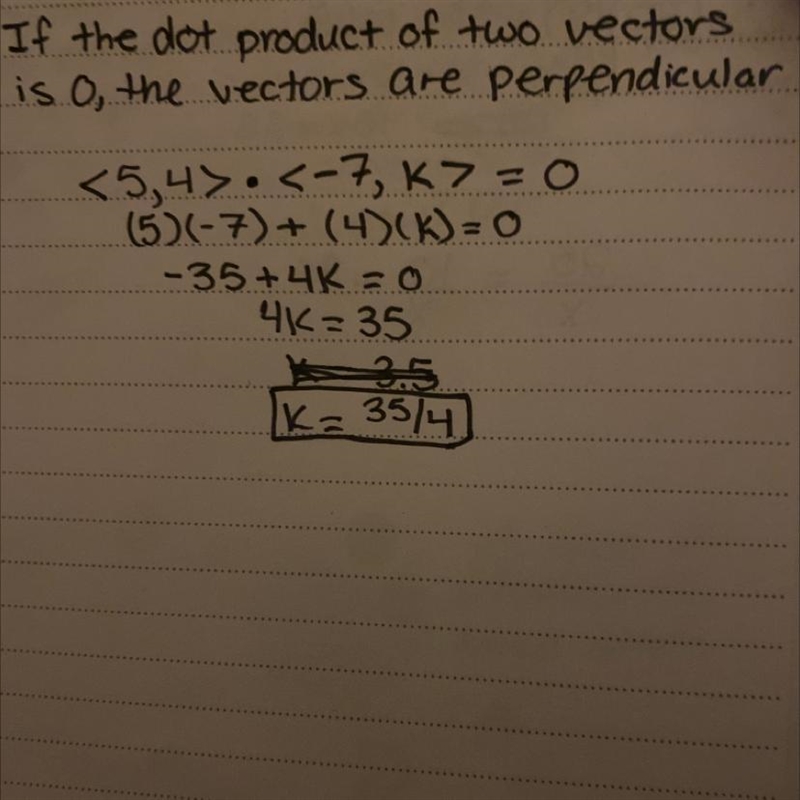 If the dot product of two vectors
is 0, the vectors are perpendicular
<5,4> • <-7, K> = 0
(5)(-7) + (4)(K) = 0
-35 + 4K = 0
4K = 35
3.5
K = 35/4